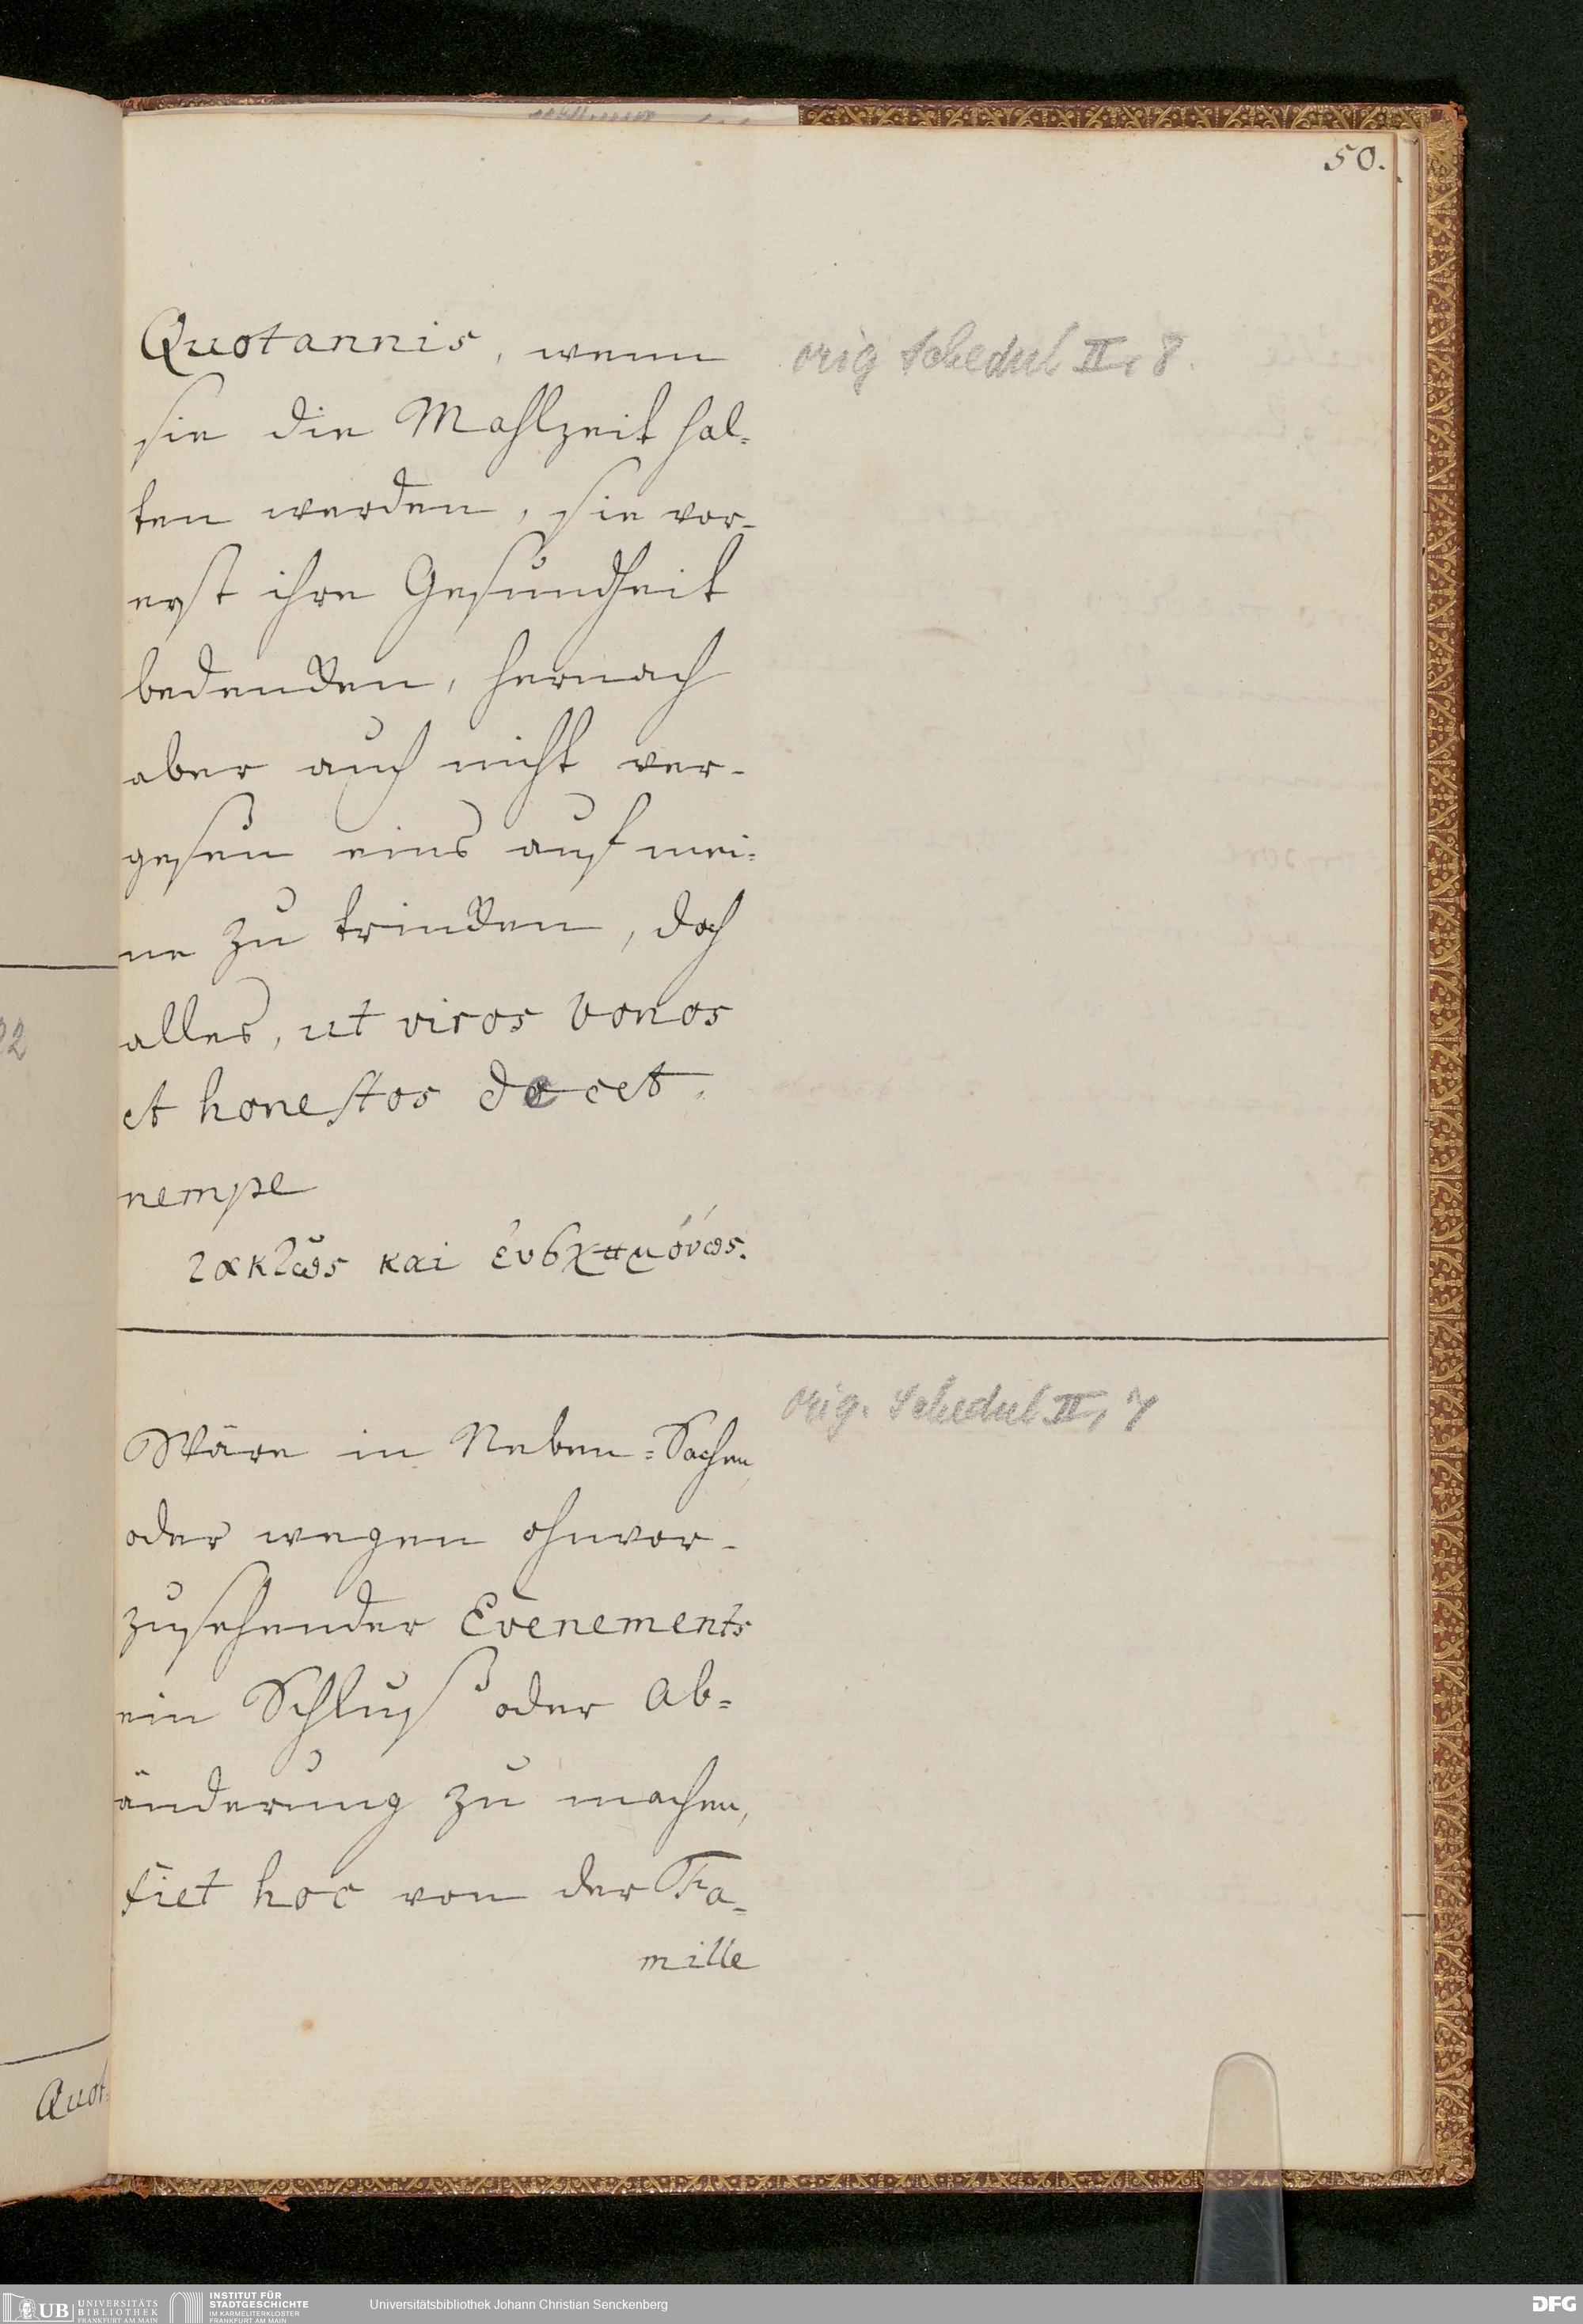 50.
Quotannis, wenn
sie die Mahlzeit hal-
ten werden, sie vor-
erst ihre Gesundheit
bedencken, hernach
aber auch nicht ver-
gesen eins auf mei-
ne zu trincken, doch
alles, ut viros bonos
et honestos decet.
nempe
τακτῶς καὶ ἐυσχημόνως.
orig Schedul II, 8.
Wäre in Neben-Sachen,
oder wegen ohnvor-
zusehender Evenements
ein Schluß oder Ab-
änderung zu machen,
fiet hoc von der Fa-
mille
orig. Schedul II, 7
Quot-
UB UNIVERSITÄTS
BIBLIOTHEK
FRANKFURT AM MAIN
INSTITUT FÜR
STADTGESCHICHTE
IM KARMELITERKLOSTER
FRANKFURT AM MAIN
Universitätsbibliothek Johann Christian Senckenberg
DFG